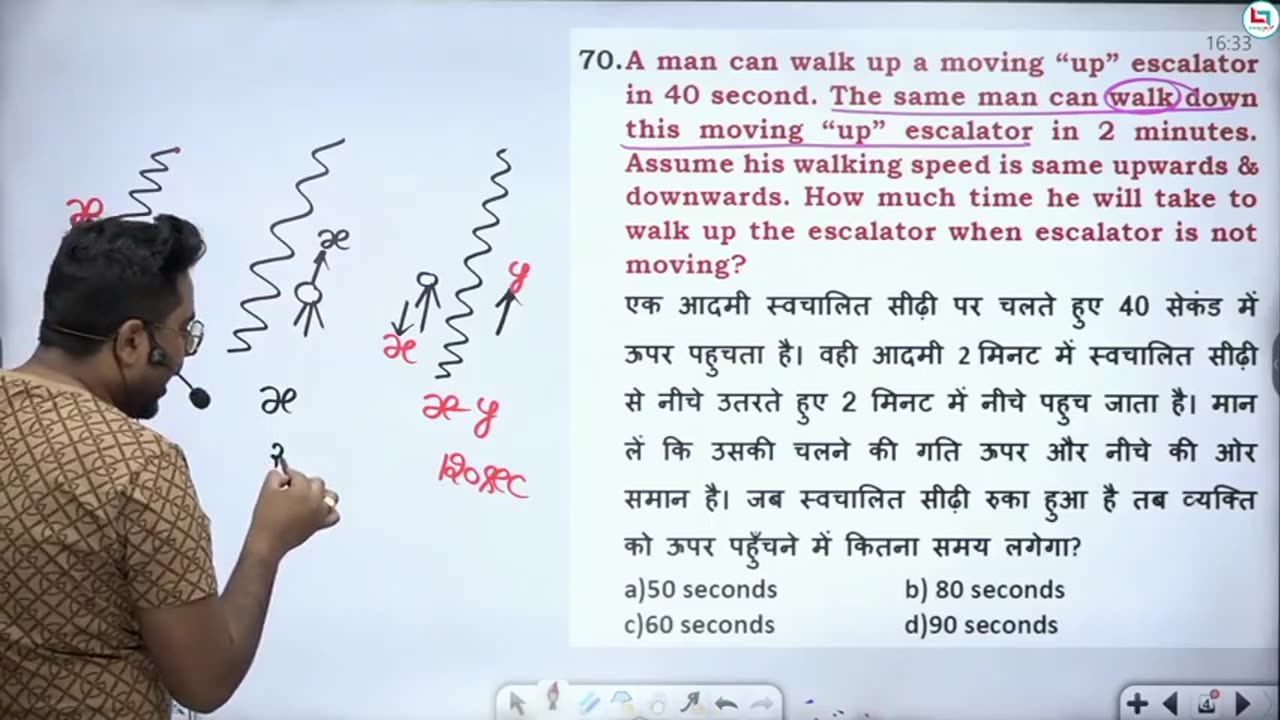 16:33
70.A man can walk up a moving “up” escalator
in 40 second. The same man can walk down
this moving “up” escalator in 2 minutes.
Assume his walking speed is same upwards &
downwards. How much time he will take to
walk up the escalator when escalator is not
moving?
एक आदमी स्वचालित सीढ़ी पर चलते हुए 40 सेकंड में
ऊपर पहुचता है। वही आदमी 2 मिनट में स्वचालित सीढ़ी
से नीचे उतरते हुए 2 मिनट में नीचे पहुच जाता है। मान
लें कि उसकी चलने की गति ऊपर और नीचे की ओर
समान है। जब स्वचालित सीढ़ी रुका हुआ है तब व्यक्ति
को ऊपर पहुँचने में कितना समय लगेगा?
a)50 seconds b) 80 seconds
c)60 seconds d)90 seconds
x
x
y
x
x
x-y
120sec